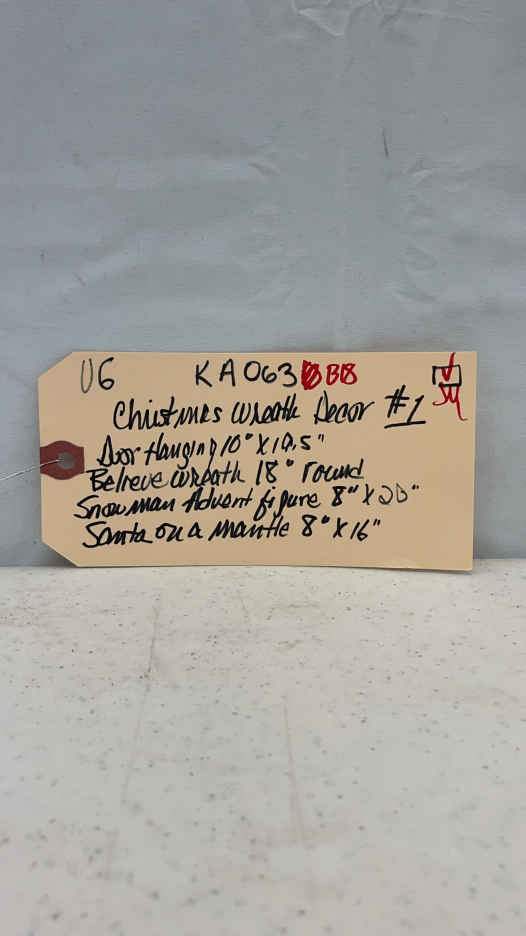 06 KA063 BB
Christmas Wreath Decor #1
Door Hanging 10" X 19.5"
Believe wreath 18" round
Snowman Advent figure 8" X 20"
Santa on a mantle 8" X 16"